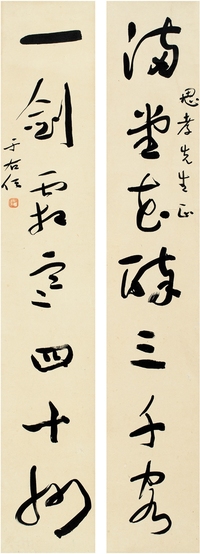 滿堂花醉三千客
思孝先生正
一劍霜寒四十州
于右任